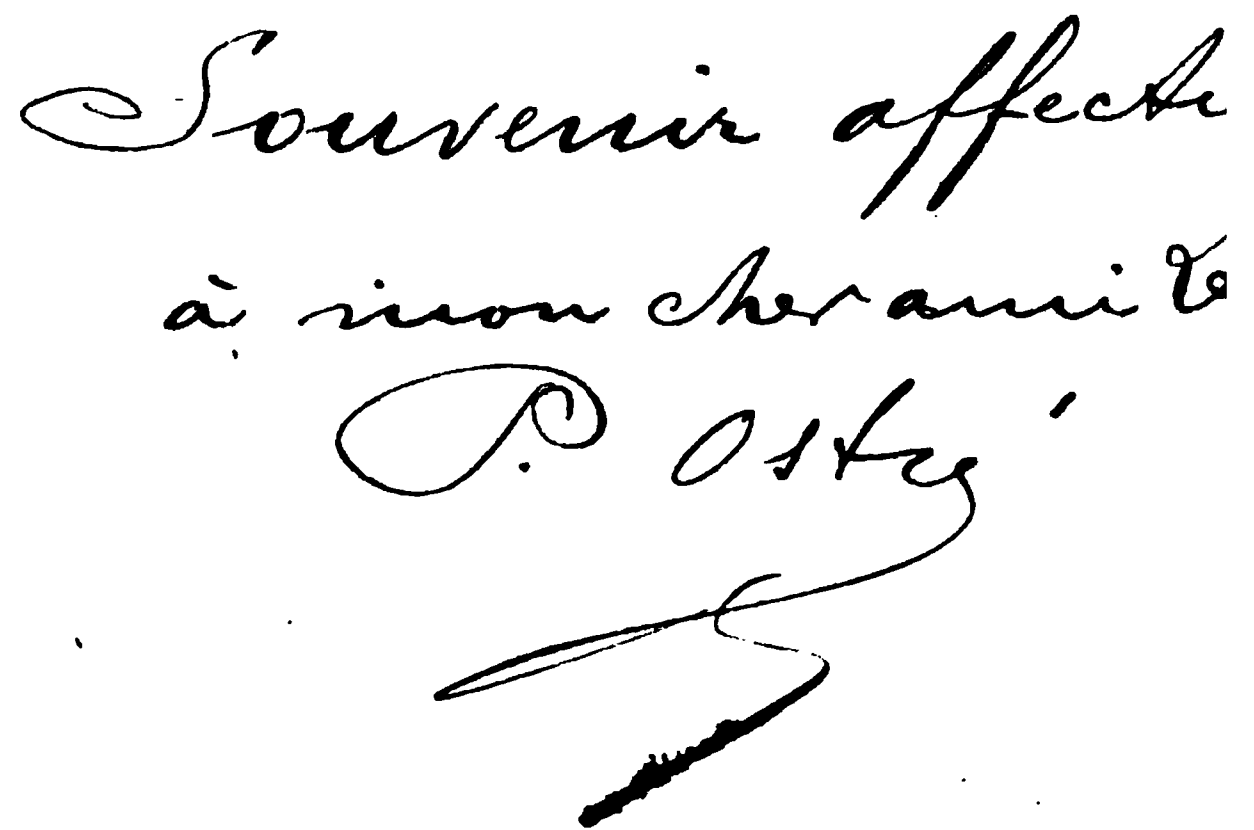 Souvenir affecti
à mon cher ami
P. Ostré